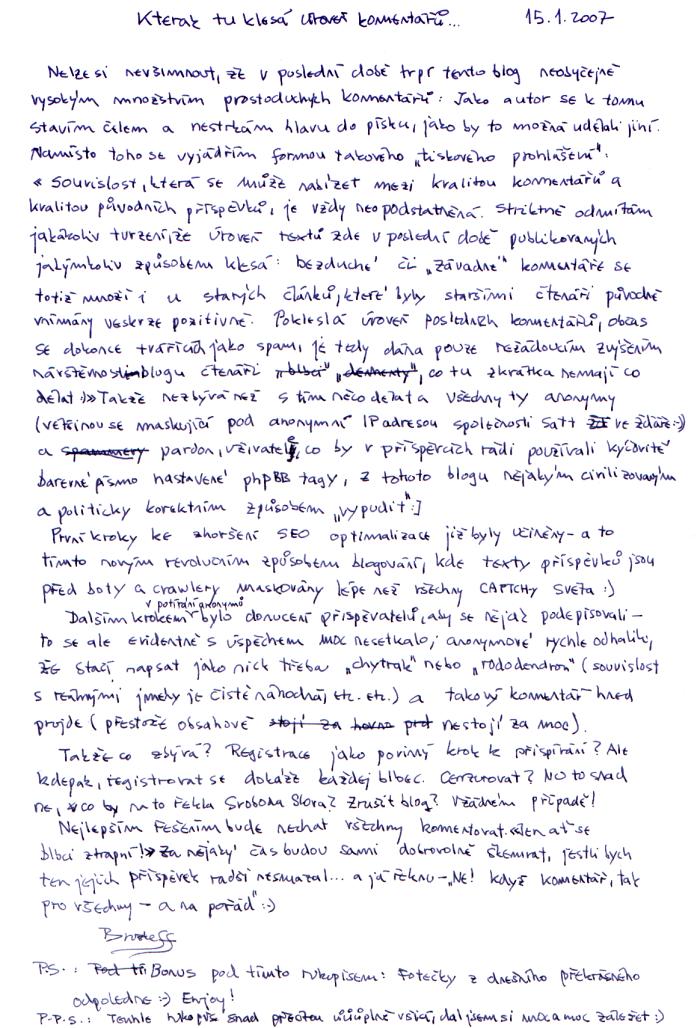 Kterak tu klesá úroveň komentářů... 15.1.2007
Nelze si nevšimnout, že v poslední době trpí tento blog neobyčejně
vysokým množstvím prostoduchých komentářů. Jako autor se k tomu
stavím čelem a nestrkám hlavu do písku, jako by to možná udělali jiní.
Namísto toho se vyjádřím formou takového „tiskového prohlášení":
« Souvislost, která se může nabízet mezi kvalitou komentářů a
kvalitou původních příspěvků, je vždy neopodstatněná. Striktně odmítám
jakákoliv tvrzení, že úroveň textů zde v poslední době publikovaných
jakýmkoliv způsobem klesá: bezduché či „závadné" komentáře se
totiž množí i u starých článků, které byly staršími čtenáři původně
vnímány veskrze pozitivně. Pokleslá úroveň posledních komentářů, občas
se dokonce tvářících jako spam, je tedy dána pouze nežádoucím zvýšením
návštěvnosti blogu čtenáři „blbci" „dementy", co tu zkrátka nemají co
dělat.» Takže nezbývá než s tím něco dělat a všechny ty anonymy
(většinou se maskující pod anonymní IP adresou společnosti Satt ve Žďáře:)
a spammery pardon, uživatele, co by v příspěvcích rádi používali kýčovité
barevné písmo nastavené phpBB tagy, z tohoto blogu nějakým civilizovaným
a politicky korektním způsobem „vypudit":]
První kroky ke zhoršení SEO optimalizace již byly učiněny - a to
tímto novým revolučním způsobem blogování, kde texty příspěvků jsou
před boty a crawlery maskovány lépe než všechny CAPTCHY světa :)
Dalším krokem v potírání anonymů bylo donucení přispěvatelů, aby se nějak podepisovali -
to se ale evidentně s úspěchem moc nesetkalo; anonymové rychle odhalili,
že stačí napsat jako nick třeba „chytrák" nebo „rododendron" (souvislost
s reálnými jmény je čistě náhodná, etc. etc.) a takový komentář hned
projde (přestože obsahově stojí za hovno nestojí za moc).
Takže co zbývá? Registrace jako povinný krok k přispívání? Ale
kdepak, registrovat se dokáže každej blbec. Cenzurovat? No to snad
ne, co by na to řekla Svoboda Slova? Zrušit blog? V žádném případě!
Nejlepším řešením bude nechat všechny komentovat. «Jen ať se
blbci ztrapní!» Za nějaký čas budou sami dobrovolně škemrat, jestli bych
ten jejich příspěvek radši nesmazal... a já řeknu - „Ne! když komentář, tak
pro všechny - a na pořád" :-)
P.S.: Pod tí Bonus pod tímto rukopisem: Fotečky z dnešního překrásného
odpoledne :-) Enjoy!
P.P.S.: Tenhle rukopis snad přečtou úúúplně všici, dal jsem si moc a moc záležet :)